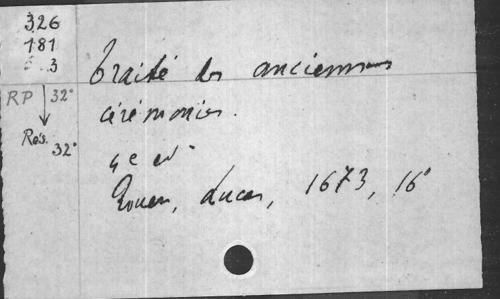 326
181
3
Traité des anciennes
RP 32°
cérémonies.
Rés. 32°
4e ed.
Rouen, Lucas, 1673, 16°